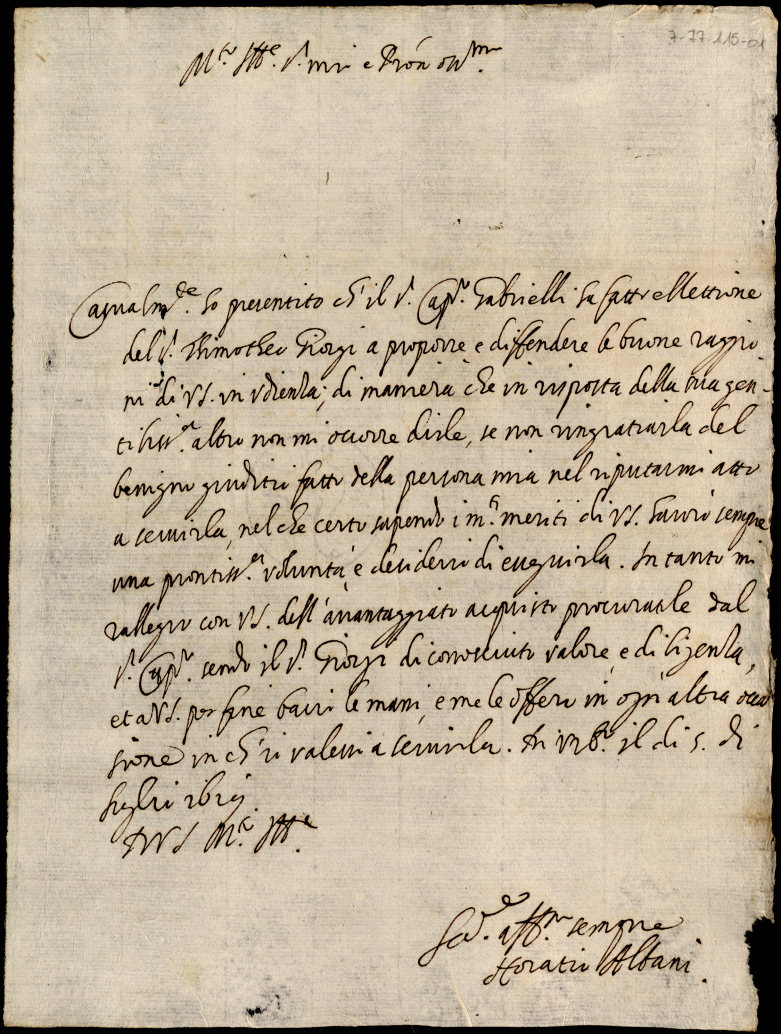 7-77-115-01
M.to Ill.e S.r mio e Pron oss.mo
Casualm.te ho presentito ch'il S.r Cap.o Gabrielli ha fatto ellettione
del S.r Thimotheo Giorgi a proporre e diffendere le buone raggio
ni di VS. in Udienza; di maniera che in risposta della sua gen-
tiliss.a altro non mi occorre dirle, se non ringratiarla del
benigno giuditio fatto della persona mia nel riputarmi atto
a servirla, nel che certo sapendo i m.ti meriti di VS. havrò sempre
una prontiss.a voluntà, e desiderio di esseguirla. In tanto mi
rallegro con VS. dell'avantaggiato acquisto procuratole dal
S.r Cap.o sendo il S.r Giorgi di conosciuto valore, e diligenza,
et a VS. per fine bacio le mani, e me le offero in ogni altra occa
sione in ch'io valessi a servirla. In Urb.o il di 5. di
luglio
Di VS M.to Ill.e
Se.re aff.mo sempre
Horatio Albani.